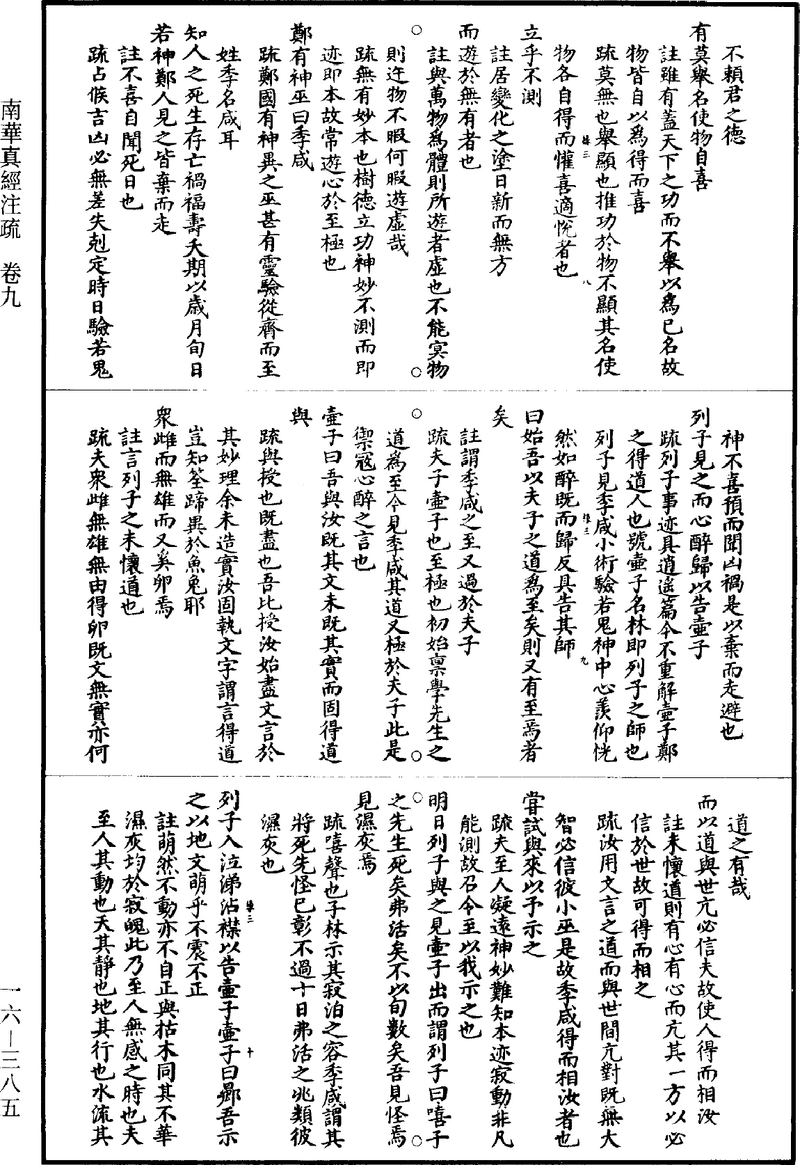 不賴君之德
有莫舉名使物自喜
註雖有蓋天下之功而不舉以為已名故
物皆自以為得而喜
疏莫無也舉顯也推功於物不顯其名使
物各自得而懽喜適悅者也
立乎不測
註居變化之塗日新而無方
而遊於無有者也
註與萬物為體則所遊者虛也不能冥物
則迕物不暇何暇遊虛哉
疏無有妙本也樹德立功神妙不測而即
迹即本故常遊心於至極也
鄭有神巫曰季咸
疏鄭國有神異之巫甚有靈驗從齊而至
姓季名咸耳
知人之死生存亡禍福壽夭期以歲月旬日
若神鄭人見之皆棄而走
註不喜自聞死日也
疏占候吉凶必無差失剋定時日驗若鬼
神不喜預而聞凶禍是以棄而走避也
列子見之而心醉歸以告壺子
疏列子事迹具逍遙篇今不重解壺子鄭
之得道人也號壺子名林即列子之師也
列子見季咸小術驗若鬼神中心羨仰恍
然如醉既而歸反具告其師
曰始吾以夫子之道為至矣則又有至焉者
矣
註謂季咸之至又過於夫子
疏夫子壺子也至極也初始稟學先生之
道為至今見季咸其道又極於夫子此是
禦寇心醉之言也
壺子曰吾與汝既其文未既其實而固得道
與
疏與授也既盡也吾比授汝始盡文言於
其妙理余未造實汝固執文字謂言得道
豈知筌蹄異於魚兔耶
眾雌而無雄而又奚卵焉
註言列子之未懷道也
疏夫眾雌無雄無由得卵既文無實亦何
道之有哉
而以道與世亢必信夫故使人得而相汝
註未懷道則有心有心而亢其一方以必
信於世故可得而相之
疏汝用文言之道而與世間亢對既無大
智必信彼小巫是故季咸得而相汝者也
嘗試與來以予示之
疏夫至人凝遠神妙難知本迹寂動非凡
能測故召令至以我示之也
明日列子與之見壺子出而謂列子曰嘻子
之先生死矣弗活矣不以旬數矣吾見怪焉
見濕灰焉
疏嘻聲也子林示其寂泊之容季咸謂其
將死先怪已彰不過十日弗活之兆類彼
濕灰也
列子入泣涕沾襟以告壺子壺子曰鄉吾示
之以地文萌乎不震不正
註萌然不動亦不自正與枯木同其不華
濕灰均於寂魄此乃至人無感之時也夫
至人其動也天其靜也地其行也水流其
南華真經注疏　卷九
一六—三八五